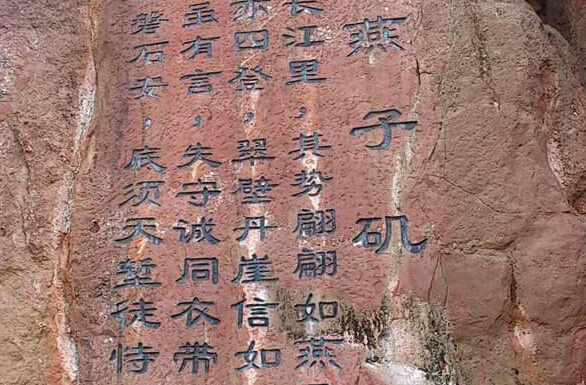 燕子矶
长江里，其势翩翩如燕
亦四登，翠壁丹崖信如
虽有言，失守诚同衣带
磐石安，底须天堑徒恃